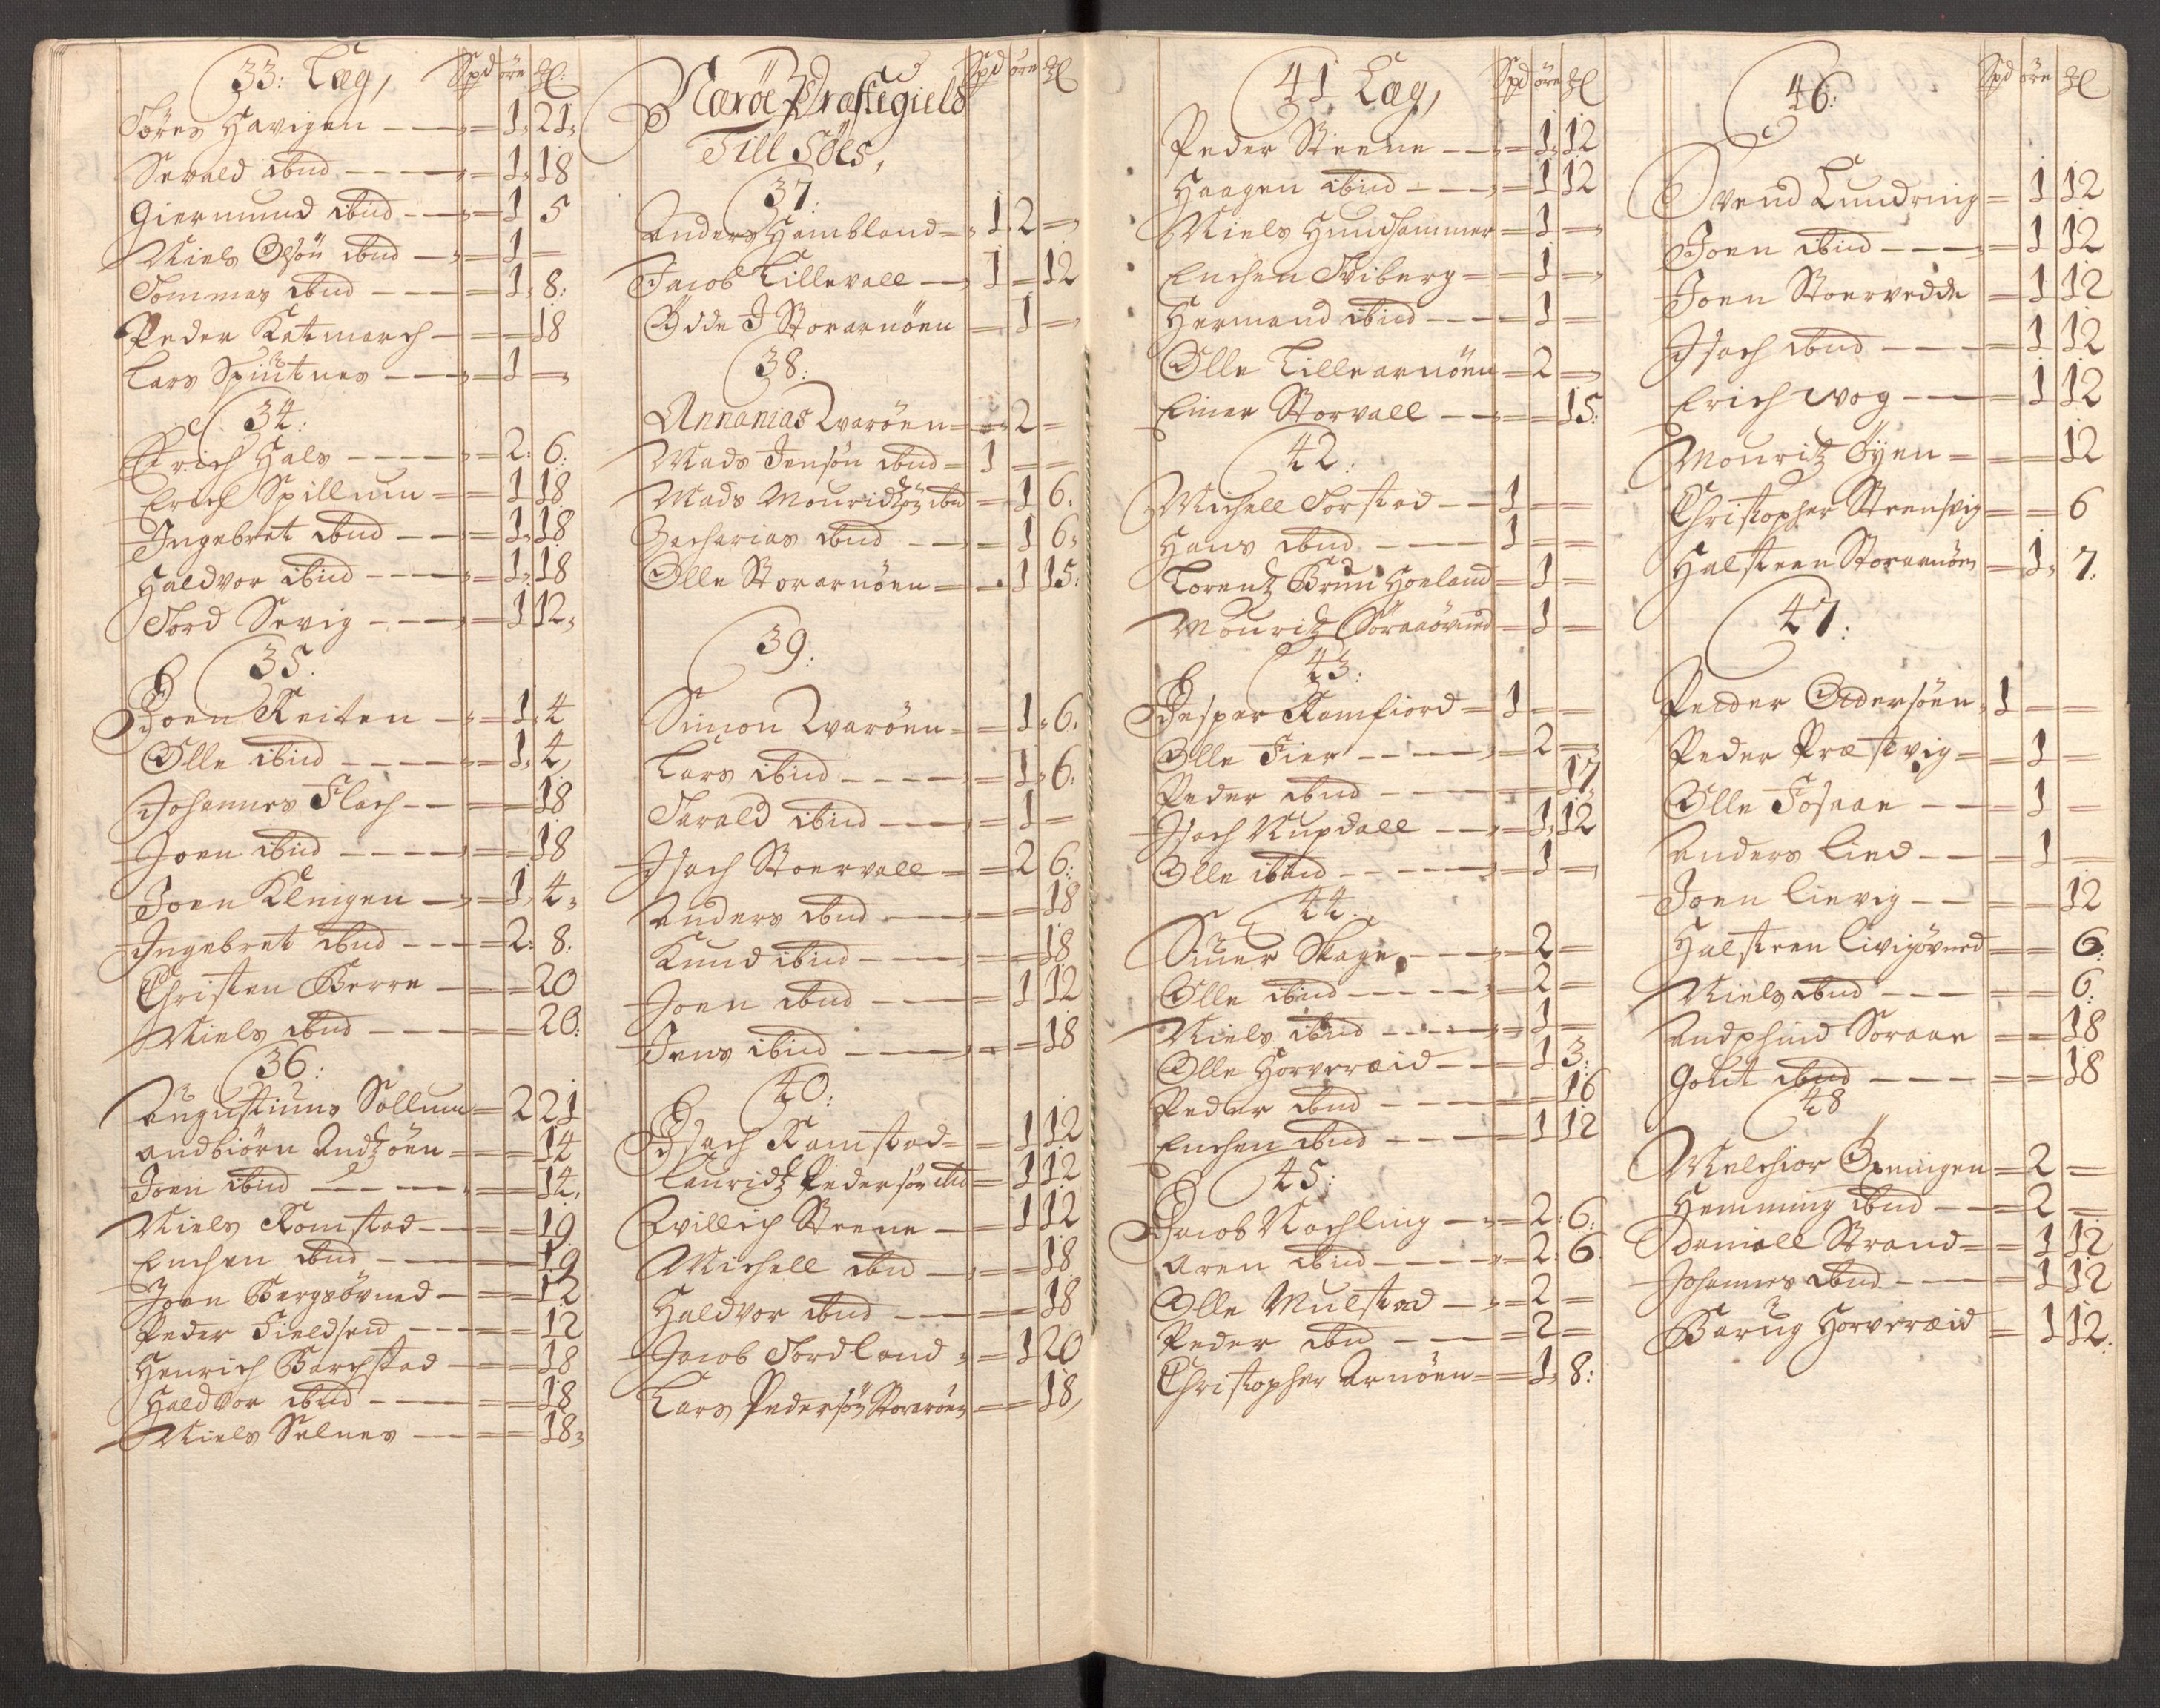 33: Læg, Spd öre ₰:
Töres Havigen - - - = 1. 21.
Sevald ibid - - - - = 1. 18
Giermund ibid - - - = 1 5
Niels Olsön ibid - = 1 =
Tommas ibid - - - = 1. 8:
Peder Katmarch - = = 18
Lars Spiütnes - - - = 1 =
34:
Erich Hals - - - - - = 2: 6:
Erich Spillum = = 1 18
Ingebret ibid - - = 1. 18
Haldvor ibid - - - = 1. 18
Tord Sevig - - - = 1 12.
35.
Joen Reiten - = 1. 4
Olle ibid - - - - = 1. 4,
Johannes Flach - - = 18
Joen ibid - - - - = = 18
Joen Klingen - = 1. 4.
Ingebret ibid - - - = 2: 8:
Christen Berre - = 20
Niels ibid - - - = = 20:
36:
Augustinus Sollum = 2 21
Andbiörn Andzöen = = 14
Joen ibid - - - - = = 14.
Niels Romstad - - = = 19
Enchen ibid - - - = 19
Joen Bergsövned - = = 12
Peder Fieldsend - - = = 12
Henrich Barchstad - = = 18
Haldvor ibid - - - = = 18
Niels Selnes - - = = 18.
Næröe Præstegield
Till Söes,
Spd öre ₰
37:
Anders Hambland = 1. 2 =
Jacob Lillevall - 1 = 12
Odde J Storarnöen = 1 =
38:
Annanias Qvaröen = = 2 =
Mads Jensön ibid = 1 = =
Mads Mouridzön ibid = 1 6:
Zacharias ibid - - = 1 6.
Olle Storarnöen = = 1 15:
39:
Simon Qvaröen = = 1. 6.
Lars ibid - - - - = 1. 6.
Tarald ibid - - - = 1 =
Isach Stoervall = = 2 6:
Anders ibid - - - = = 18
Knud ibid - - - = = 18
Joen ibid - - - = 1 12
Jens ibid - - - = = 18
40:
Isach Ramstad = = 1 12
Lauridz Pedersön ibid = 1 12
Villich Steene - = 1 12
Michell ibid - = = 18
Haldvor ibid - - = = 18
Jacob Tordland = = 1 20
Lars Pedersön Storaröen = = 18,
41 Læg, Spd öre ₰
Peder Steene - - = 1. 12
Haagen ibid - - - = 1 12
Niels Hundhammer = 1 =
Enchen Sviberg = = 1 =
Hermand ibid - - - = 1 =
Olle Lillearnöen = 2 =
Einer Storvall - - = = 15:
42:
Michell Torstad - - 1 = =
Hans ibid - - - - 1 = =
Lorentz Brun Hoeland = 1 =
Mouritz Söraaövned = 1 =
43:
Jesper Ramfiord = 1 = =
Olle Fier - - - - = 2 =
Peder ibid - - - - = = 17
Isach Nupdall - - = 1. 12
Olle ibid - - - - = 1 =
44:
Siuer Skage - - - = 2 =
Olle ibid - - - - = 2 =
Niels ibid - - - - = 1 =
Olle Horveræid - - = 1 3:
Peder ibid - - - - = = 16
Enchen ibid - - - = 1 12
45:
Jacob Kochling - = 2: 6:
Aren ibid - - - - = 2: 6
Olle Mulstad - = 2 =
Peder ibid - - - = 2 =
Christopher Arnöen = = 1. 8:
46: Spd öre ₰
Svend Lundring = 1 12
Joen ibid - - - = 1 12
Joen Stoervedde = 1 12
Isach ibid - - - = 1 12
Erich Wog - - - = 1 12
Mouritz Öyen = = = 12
Christopher Steensvig = = 6
Halsteen Storarnöen = 1. 7.
47:
Peder Andersöen. 1 = =
Peder Præstvig = = 1 =
Olle Fosaae - - = 1 =
Anders Lied - - = 1 =
Joen Lievig - - = = 12
Halsteen Livigövned = = 6:
Niels ibid - - - = = 6:
Andphind Soraae = = 18
Gout ibid - - - = = 18
48
Melchior Öpningen = 2 =
Hemming ibid - - = 2 =
Daniell Strand = = 1 12
Johannes ibid - - - = 1 12
Barug Horveræid = 1 12: